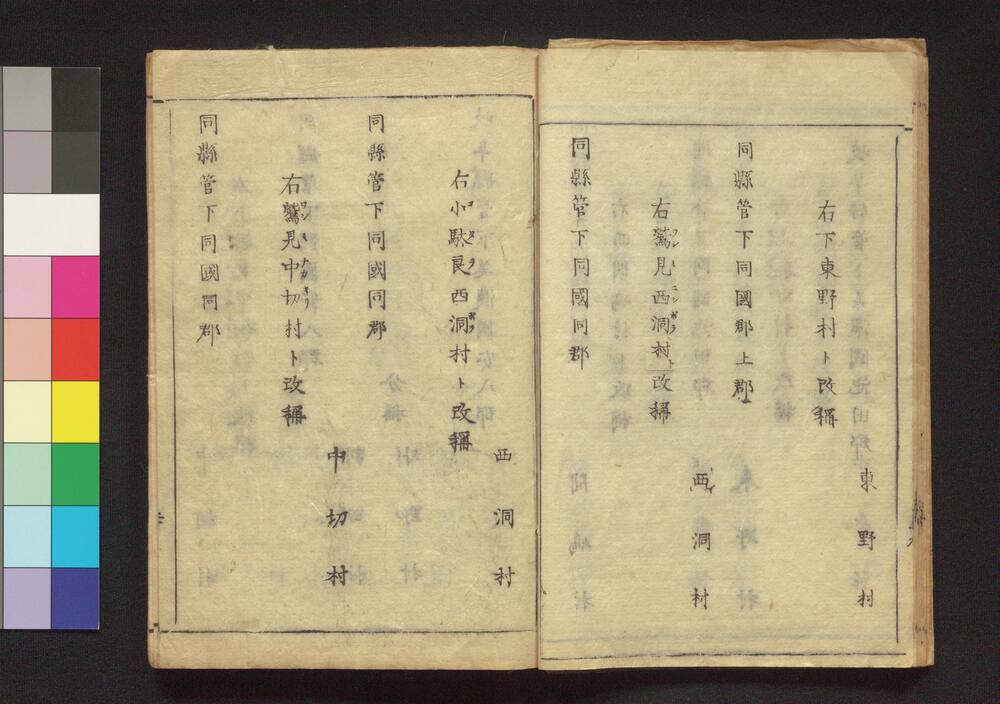 東野村
右下東野村ト改稱
同縣管下同國郡上郡
西洞村
右鷲見西洞村ト改稱
同縣管下同國同郡
西洞村
右小駄良西洞村ト改稱
同縣管下同國同郡
中切村
右鷲見中切村ト改稱
同縣管下同國同郡